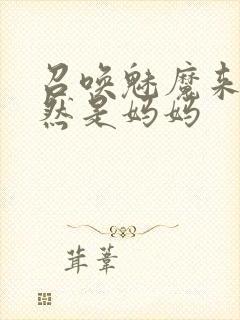 召唤魅魔来
然是妈妈
茸葦